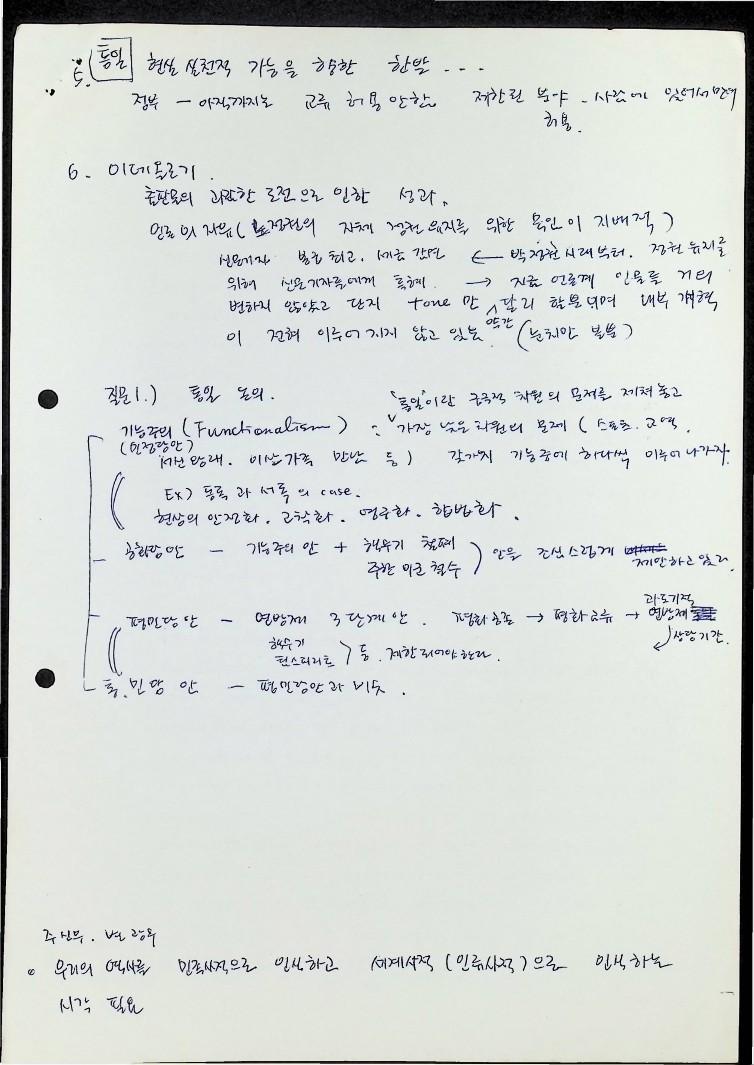 5. 통일 현실 실천적 가능을 향한 한발 ...
정부 - 아직까지는 교류 허용안함 제한된 분야 - 사람에 있어서만
허용.
6. 이데올로기.
출판물의 과감한 도전으로 인한 성과.
언론의 자유 ( 정권의 자체 정권 유지를 위한 묵인이 지배적 )
신문기자 봉급 최고. 세금 감면 ← 박정권시대부터. 정권유지를
위해 신문기자들에게 특혜. → 지금 언론계 인물들 거의
변하지 않았고 단지 tone 만 약간 달리 할뿐이며 내부 개혁
이 전혀 이루어지지 않고 있는 (눈치만 볼뿐)
질문1.) 통일 논의. "통일"이란 궁극적 차원의 문제를 제쳐 놓고
기능주의 (Functionalism) : 가장 낮은 차원의 문제 ( 스포츠. 교역.
(민정당안)
서신왕래. 이산가족 만남 등 ) 갖가지 기능중에 하나씩 이루어 나가자.
Ex) 동독과 서독의 case.
현상의 안전화. 고착화. 영구화. 합법화.
공화당안 - 기능주의 안 + 핵무기 철폐
주한 미군 철수 ) 안을 조심스럽게 제안하고 있다.
평민당안 - 연방제 3단계안. 평화공존 → 평화교류 → 과도기적 연방제
상당기간.
핵무기
팀스피리트 > 등. 제한되어야한다.
통.민당 안 - 평민당안과 비슷.
주신무. 변광수
○ 우리의 역사를 민족사적으로 인식하고 세계사적 (인류사적)으로 인식하는
시각 필요